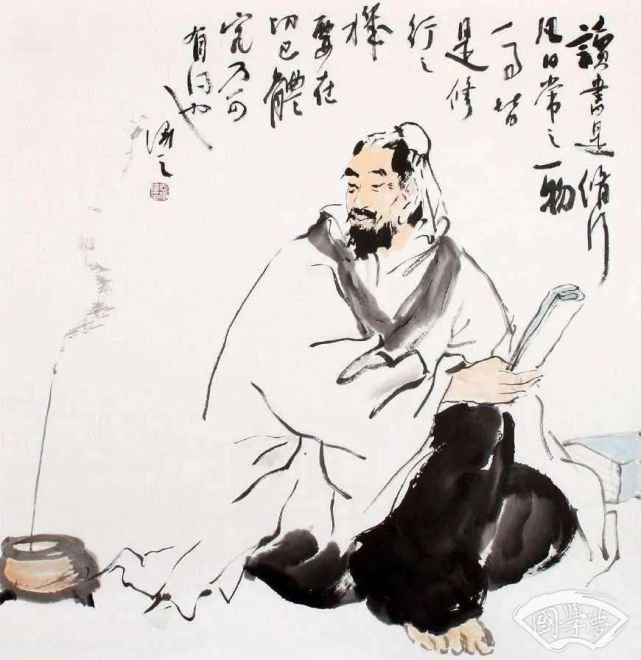 讀書是脩行
凡日常之一物
一事皆
是修
行之
機
要在
切己體
究乃可
有得也
國學夢